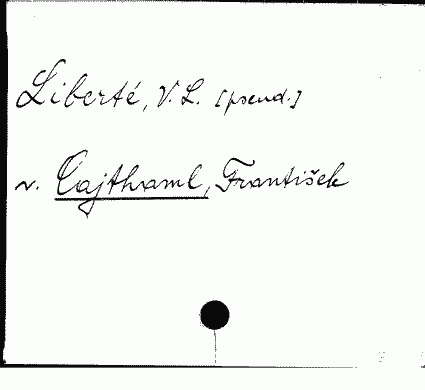 Liberté, V. L. [pseud.]
v. Cajthaml, František